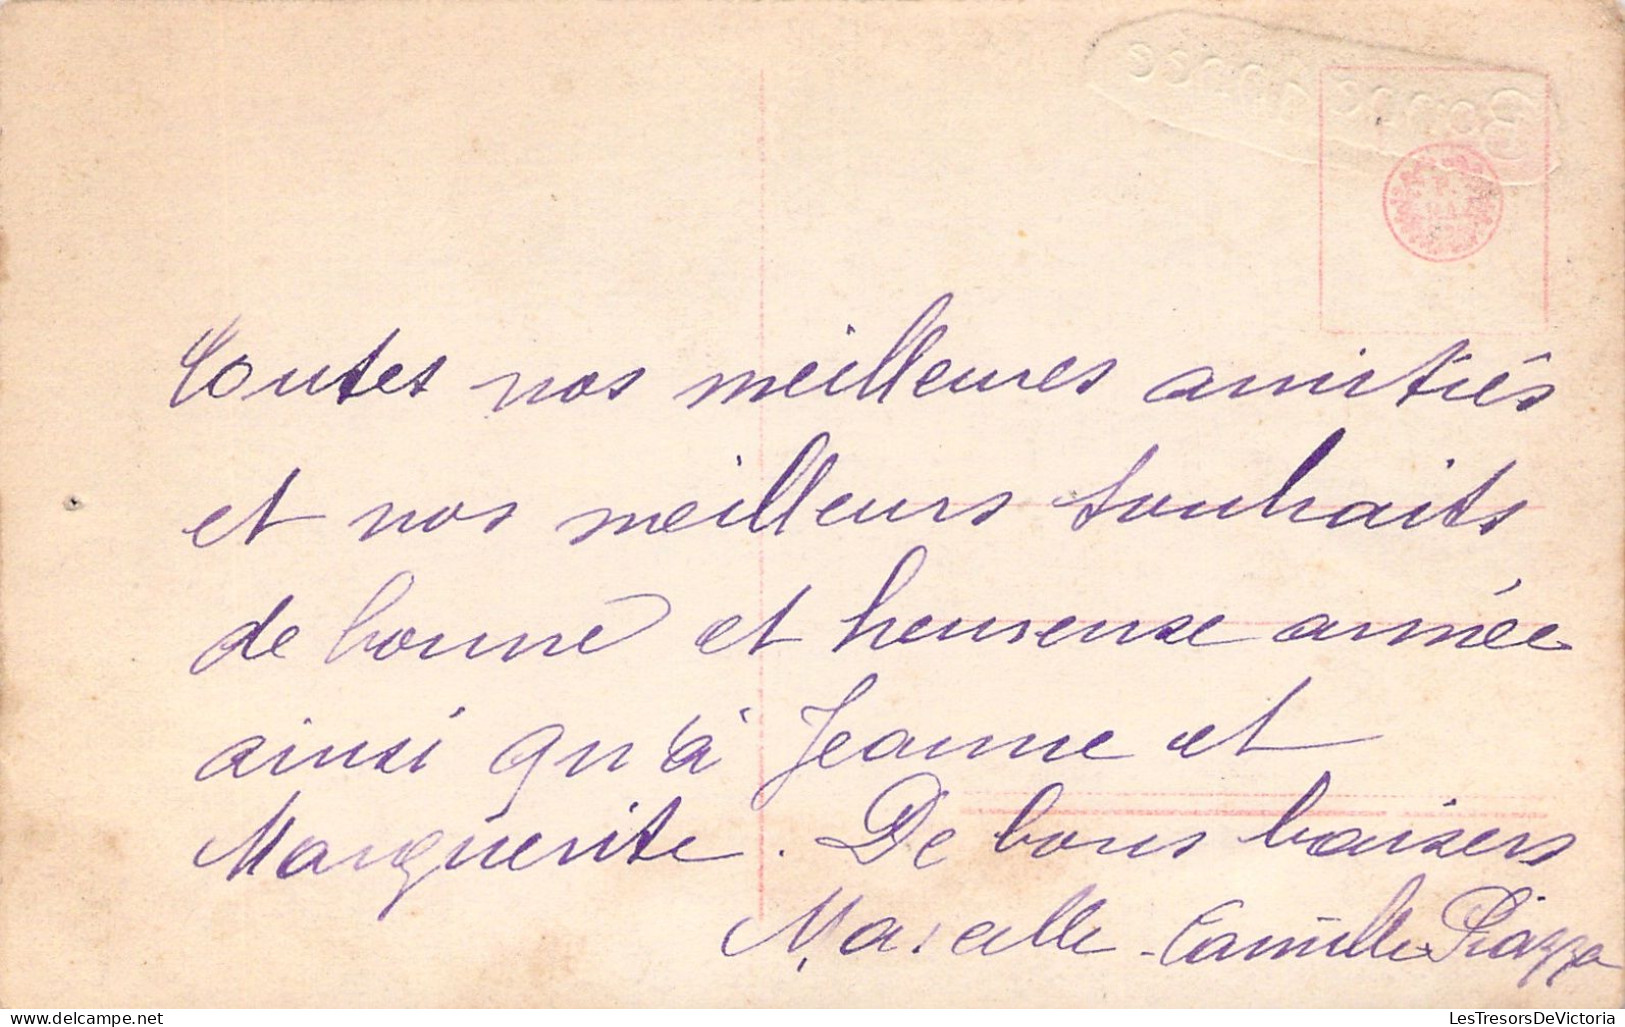 Bonne Année
Toutes nos meilleures amitiés
et nos meilleurs souhaits
de bonne et heureuse année
ainsi qu'à Jeanne et
Marguerite. De bons baisers
Marcelle - Camille Piazza
www.LesTresorsDeVictoria.com
LesTresorsDeVictoria